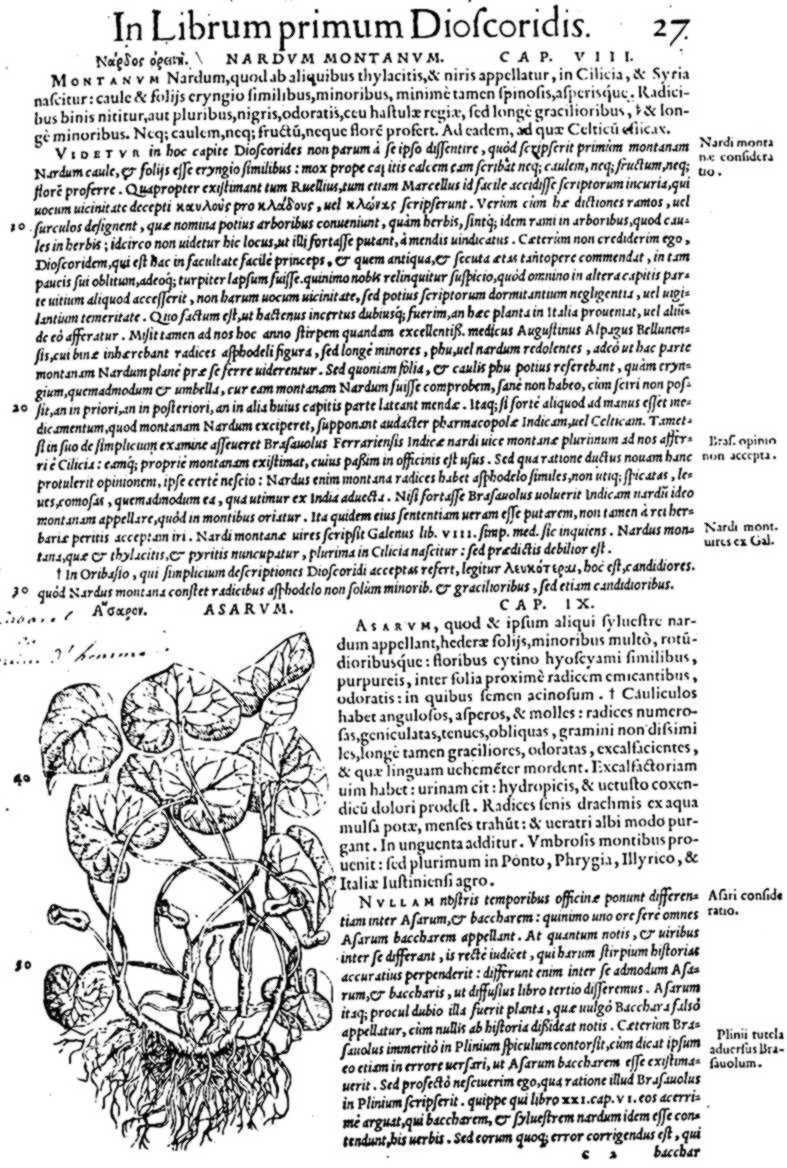 In Librum primum Dioſcoridis. 27
Νάρδος ὀρεινή. \ NARDVM MONTANVM. CAP. VIII.
MONTANVM Nardum, quod ab aliquibus thylacitis,& niris appellatur, in Cilicia, & Syria
naſcitur: caule & folijs eryngio ſimilibus,minoribus, minimè tamen ſpinoſis,aſperisque. Radici-
bus binis nititur,aut pluribus,nigris,odoratis,ceu haſtulæ regiæ, ſed longè gracilioribus, † & lon-
gè minoribus. Neq; caulem,neq; fructũ,neque florẽ profert. Ad eadem, ad quæ Celticũ efficax.
VIDETVR in hoc capite Dioſcorides non parum à ſe ipſo diſſentire, quòd ſcripſerit primùm montanam
Nardi monta
Nardum caule, & folijs eſſe eryngio ſimilibus: mox prope capitis calcem eam ſcribàt neq; caulem, neq; fructum,neq;
næ conſidera
tio.
florẽ proferre. Quapropter exiſtimant tum Ruellius,tum etiam Marcellus id facile accidiſſe ſcriptorum incuria,qui
uocum uicinitate decepti καυλοὺς pro κλάδους, uel κλῶνας ſcripſerunt. Verùm cùm hæ dictiones ramos, uel
10 ſurculos deſignent, quæ nomina potius arboribus conueniunt, quàm herbis, ſintq; idem rami in arboribus,quod cau-
les in herbis; idcirco non uidetur hic locus,ut illi fortaſſe putant,à mendis uindicatus. Cæterùm non crediderim ego,
Dioſcoridem,qui eſt hac in facultate facilè princeps, & quem antiqua,& ſecuta ætas tantopere commendat, in tam
paucis ſui oblitum,adeoq; turpiter lapſum fuiſſe.quinimo nobis relinquitur ſuſpicio,quòd omnino in altera capitis par-
te uitium aliquod acceſſerit, non harum uocum uicinitate,ſed potius ſcriptorum dormitantium negligentia, uel uigi-
lantium temeritate. Quo factum eſt,ut hactenus incertus dubiusq; fuerim,an hæc planta in Italia proueniat, uel aliũ-
de eò afferatur. Miſit tamen ad nos hoc anno ſtirpem quandam excellentiſſ. medicus Auguſtinus Alpagus Bellunen-
ſis,cui binæ inhærebant radices aſphodeli figura, ſed longè minores, phu,uel nardum redolentes, adeò ut hac parte
montanam Nardum planè præ ſe ferre uiderentur. Sed quoniam folia, & caulis phu potius referebant, quàm eryn-
gium,quemadmodum & umbella, cur eam montanam Nardum fuiſſe comprobem, ſanè non habeo, cùm ſciri non poſ-
20 ſit,an in priori,an in poſteriori, an in alia huius capitis parte lateant mendæ. Itaq; ſi fortè aliquod ad manus eſſet me-
dicamentum,quod montanam Nardum exciperet, ſupponant audacter pharmacopolæ Indicam,uel Celticam. Tamet-
ſi in ſuo de ſimplicium examine aſſeueret Braſauolus Ferrarienſis Indicæ nardi uice montanæ plurimum ad nos affer-
Braſ. opinio
ri è Cilicia: eamq; propriè montanam exiſtimat, cuius paſſim in officinis eſt uſus. Sed qua ratione ductus nouam hanc
non accepta.
protulerit opinionem, ipſe certè neſcio: Nardus enim montana radices habet aſphodelo ſimiles,non utiq; ſpicatas, le-
ues,comoſas, quemadmodum ea, qua utimur ex India aduecta. Niſi fortaſſe Braſauolus uoluerit Indicam nardũ ideo
montanam appellare,quòd in montibus oriatur. Ita quidem eius ſententiam ueram eſſe putarem, non tamen à rei her-
bariæ peritis acceptam iri. Nardi montanæ uires ſcripſit Galenus lib. VIII. ſimp. med. ſic inquiens. Nardus mon-
Nardi mont.
uires ex Gal.
tana,quæ & thylacitis,& pyritis nuncupatur, plurima in Cilicia naſcitur: ſed prædictis debilior eſt.
† In Oribaſio, qui ſimplicium deſcriptiones Dioſcoridi acceptas refert, legitur λευκότεραι, hoc eſt,candidiores.
30 quòd Nardus montana conſtet radicibus aſphodelo non ſolùm minorib. & gracilioribus, ſed etiam candidioribus.
Ἄσαρον. ASARVM. CAP. IX.
ASARVM, quod & ipſum aliqui ſylueſtre nar-
dum appellant,hederæ folijs,minoribus multò, rotũ-
dioribusque: floribus cytino hyoſcyami ſimilibus,
purpureis, inter folia proximè radicem emicantibus,
odoratis: in quibus ſemen acinoſum. † Cauliculos
habet anguloſos, aſperos, & molles: radices numero-
ſas,geniculatas,tenues,obliquas, gramini non diſſimi
les,longè tamen graciliores, odoratas, excalfacientes,
40 & quæ linguam uehemẽter mordent. Excalfactoriam
uim habet: urinam cit: hydropicis, & uetuſto coxen-
dicũ dolori prodeſt. Radices ſenis drachmis ex aqua
mulſa potæ, menſes trahũt: & ueratri albi modo pur-
gant. In unguenta additur. Vmbroſis montibus pro-
uenit: ſed plurimum in Ponto, Phrygia, Illyrico, &
Italiæ Iuſtinienſi agro.
NVLLAM noſtris temporibus officinæ ponunt differen-
Aſari conſide
tiam inter Aſarum,& baccharem: quinimo uno ore ferè omnes
ratio.
Aſarum baccharem appellant. At quantum notis, & uiribus
50 inter ſe differant, is rectè iudicet, qui harum ſtirpium hiſtorias
accuratius perpenderit: differunt enim inter ſe admodum Aſa-
rum,& baccharis, ut diffuſius libro tertio diſſeremus. Aſarum
itaq; procul dubio illa fuerit planta, quæ uulgò Bacchara falsò
appellatur, cùm nullis ab hiſtoria diſſideat notis. Cæterùm Bra-
Plinii tutela
ſauolus immeritò in Plinium ſpiculum contorſit,cùm dicat ipſum
aduerſus Bra-
eo etiam in errore uerſari, ut Aſarum baccharem eſſe exiſtima-
ſauolum.
uerit. Sed profectò neſciuerim ego,qua ratione illud Braſauolus
in Plinium ſcripſerit. quippe qui libro XXI. cap. VI. eos acerri-
mè arguat,qui baccharem, & ſylueſtrem nardum idem eſſe con-
tendunt,his uerbis. Sed eorum quoq; error corrigendus eſt, qui
c 2 bacchar